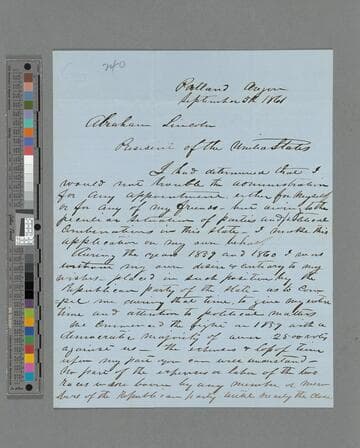 240
Portland Oregon
September 5th 1861
Abraham Lincoln
President of the United States
I had determined that I
would not trouble the administration
for any appointment either for myself
or for any of my friends but owing to the
peculiar situation of parties and political
Combinations in this State I make this
application on my own behalf
During the years 1859 and 1860 I was
without my own desire & contrary to my
wishes placed in such position by the
Republican party of the State as to Com-
pel me during that time, to give my whole
time and attention to political matters
We Commenced the fight in 1859 with a
democratic majority of over 2500 votes
against us. The expenses & loss of time
upon my part you can well understand
No part of the expenses or labor of the two
races was borne by any member or mem-
bers of the Republican party until nearly the close